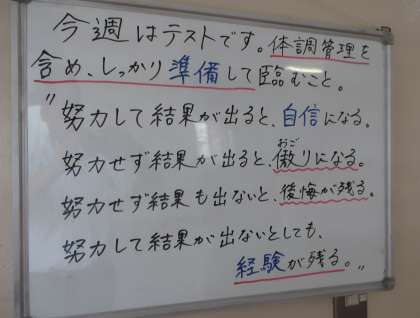 今週はテストです。体調管理を
含め、しっかり準備して臨むこと。
"努力して結果が出ると、自信になる。
努力せず結果が出ると、傲りになる。
おご
努力せず結果も出ないと、後悔が残る。
努力して結果が出ないとしても、
経験が残る。"